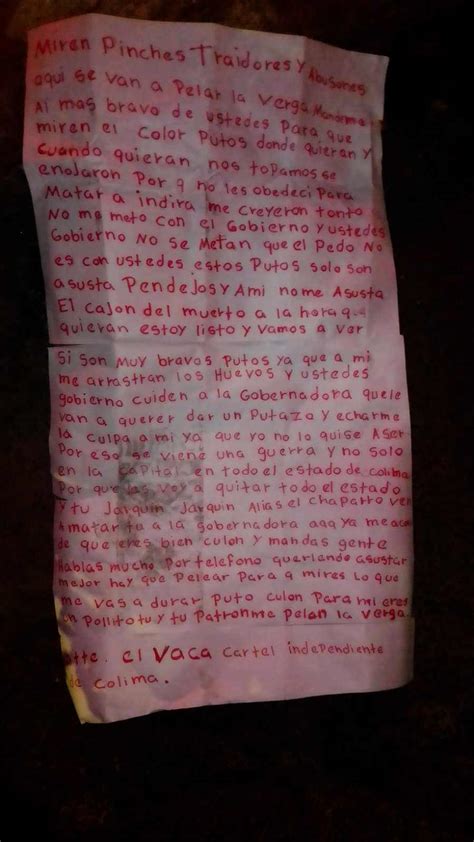 Miren Pinches Traidores y Abusones
aqui se van a Pelar la Verga
Al mas bravo de ustedes Para que
miren el Color Putos donde quieran y
Cuando quieran nos topamos se
enojaron Por q no les obedeci Para
Matar a indira me creyeron tonto
No me meto con el Gobierno y ustedes
Gobierno No se Metan que el Pedo No
es con ustedes estos Putos solo son
asusta Pendejos y Ami no me Asusta
El cajon del muerto a la hora que
quieran estoy listo y vamos a ver
Si son Muy bravos Putos ya que a mi
me arrastran los Huevos y ustedes
gobierno cuiden a la Gobernadora que le
van a querer dar un Putazo y echarme
la culpa a mi ya que yo no lo quise Aser
Por eso se viene una guerra y no solo
en la Capital en todo el estado de colima
Por que les voy a quitar todo el estado
y tu Jarquin Jarquin Alias el chaparro ven
A matar tu a la gobernadora aaa ya me aco
de que eres bien culon y mandas gente
Hablas mucho Por telefono queriendo asustar
mejor hay que Pelear Para q mires lo que
me vas a durar Puto culon Para mi eres
un Pollito tu y tu Patron me Pelan la Verga
Atte. el Vaca Cartel independiente
de Colima.